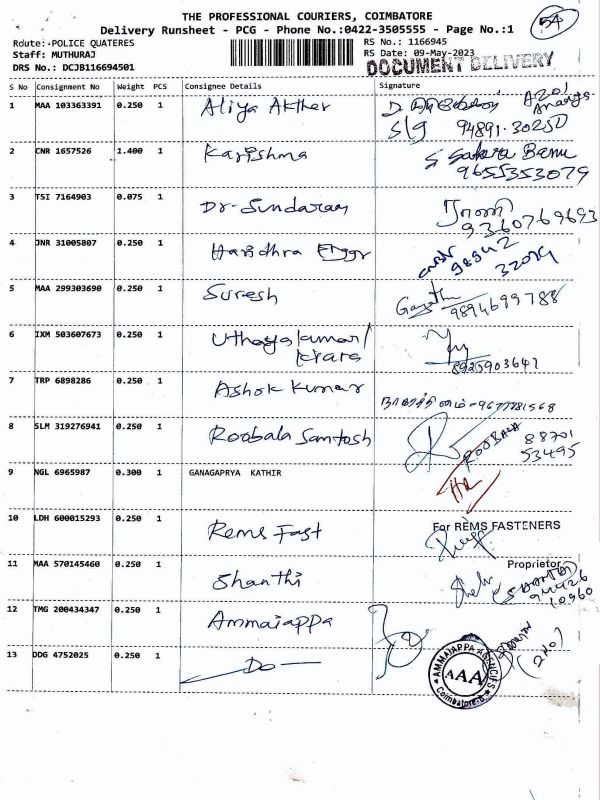 THE PROFESSIONAL COURIERS, COIMBATORE
54
Delivery Runsheet - PCG - Phone No.:0422-3505555 - Page No.:1
Route: POLICE QUATERES
RS No.: 1166945
Staff: MUTHURAJ
RS Date: 09-May-2023
DRS No.: DCJB116694501
DOCUMENT DELIVERY
S No Consignment No Weight PCS Consignee Details Signature
1 MAA 103363391 0.250 1 Aliya Akther
S/g 94891-30250
2 CNR 1657526 1.400 1 Karishma S Sakara Banu
9655353079
3 TSI 7164903 0.075 1 Dr-Sundaram
9360769693
4 JNR 31005807 0.250 1 Haridhra Engr
98942
32079
5 MAA 299303690 0.250 1 Suresh Gayathri
9894699788
6 IXM 503607673 0.250 1 Uthayakumar/
8925903641
7 TRP 6898286 0.250 1 Ashok Kumar
8 SLM 319276941 0.250 1 Roobala Santosh ROOBALA 88701
53495
9 NGL 6965987 0.300 1 GANAGAPRYA KATHIR
10 LDH 600015293 0.250 1 Rems Fast For REMS FASTENERS
Proprietor
11 MAA 570145460 0.250 1 Shanthi
10960
12 TMG 200434347 0.250 1 Ammaiappa
13 DDG 4752025 0.250 1 — Do —
AMMAIAPPA AGENCIES
AAA
Coimbatore